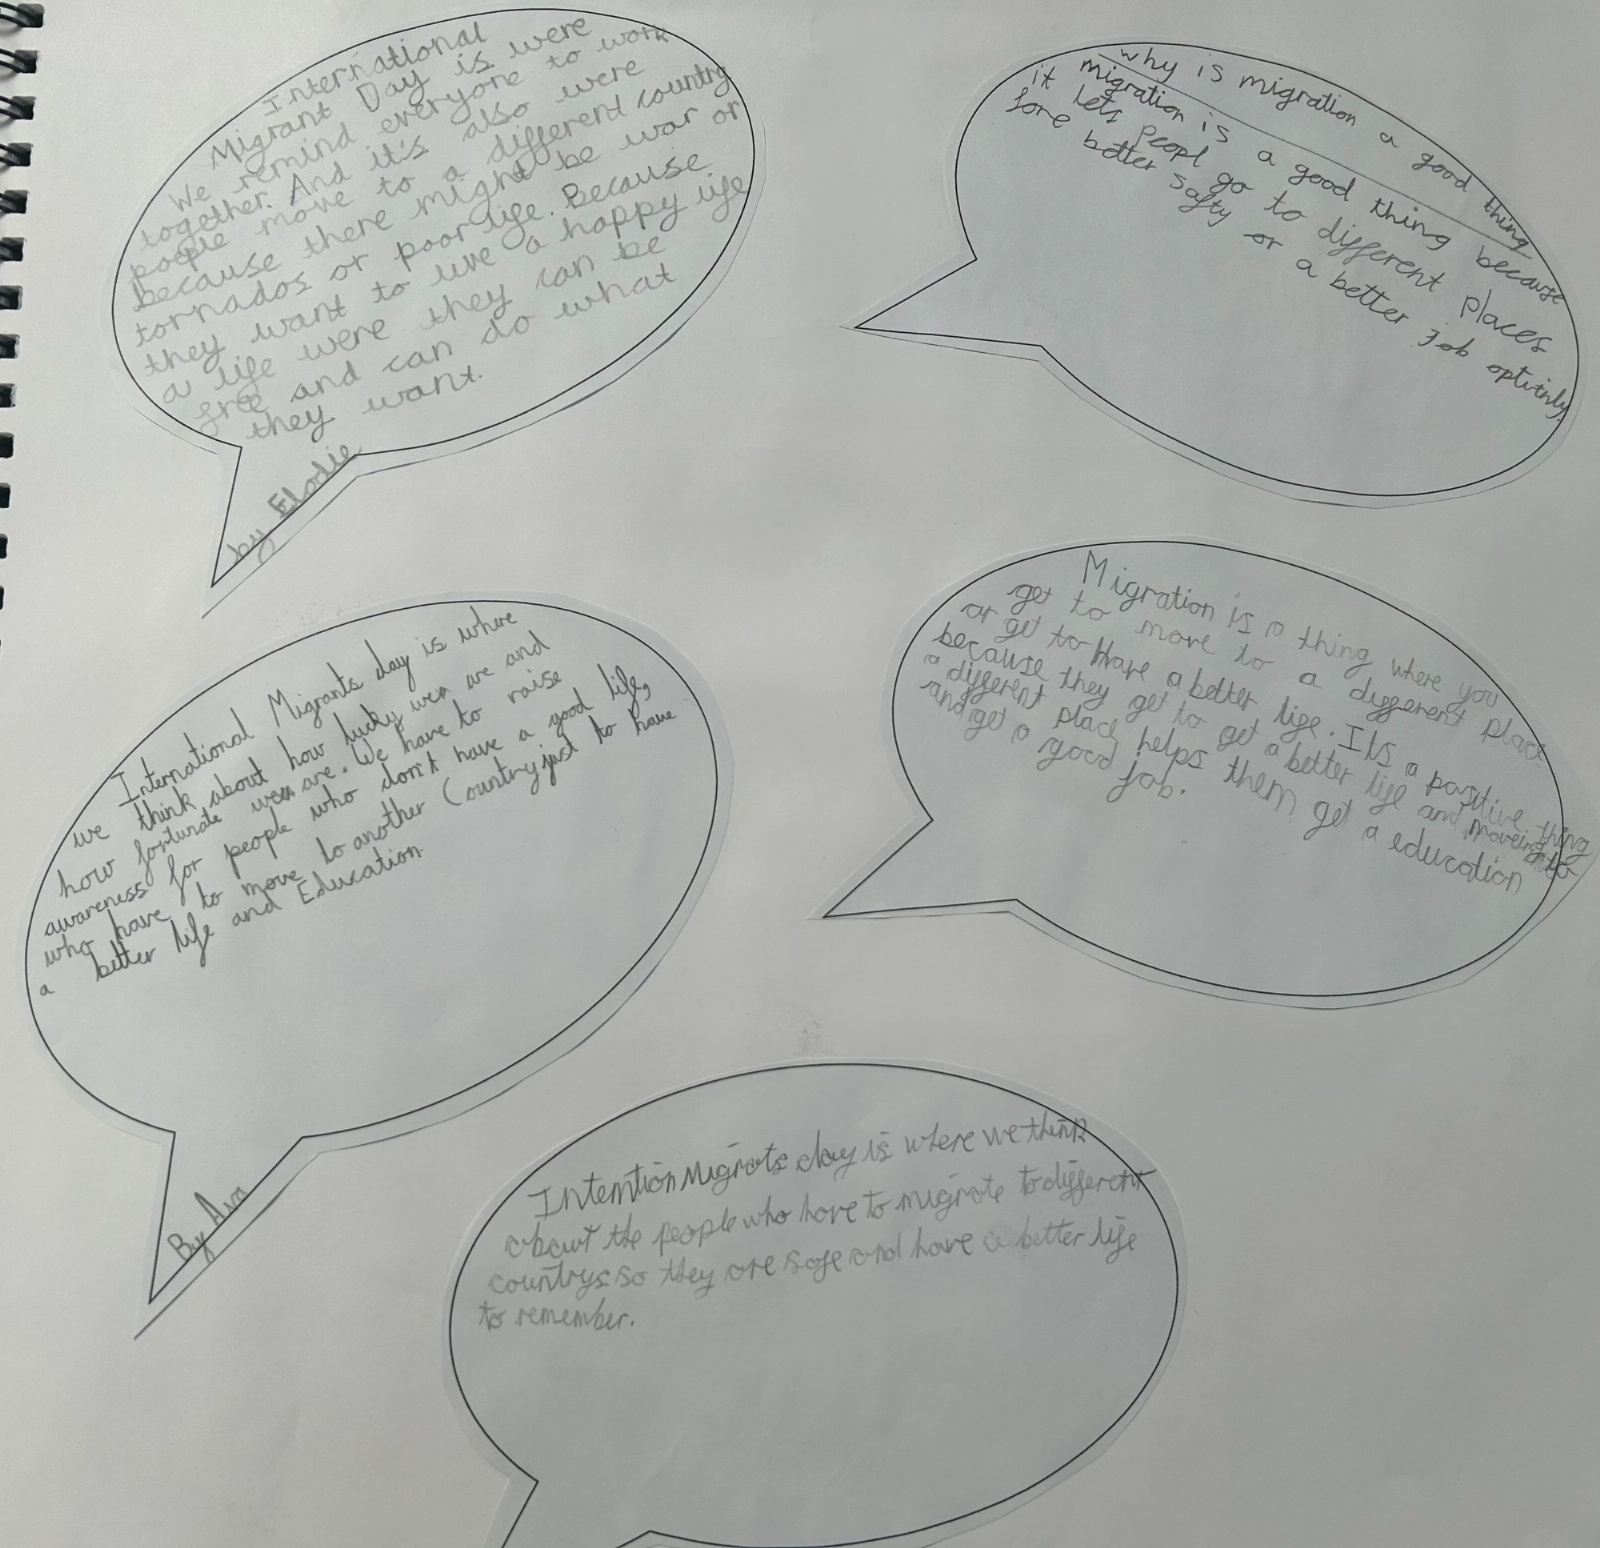 International
Migrant Day is were
We remind everyone to work
together. And it's also were
poeple move to a different country
because there might be war or
tornados or poor life. Because
they want to live a happy life
a life were they can be
free and can do what
they want.
by Elodie
why is migration a good thing
migration is a good thing because
it lets peopl go to different places
fore better safty or a better job
International Migrants day is where
we think about how lucky we are and
how fortunate we are. We have to raise
awareness for people who don't have a good life,
who have to move to another Country just to have
a better life and Education.
By Ava
Migration is a thing where you
get to move to a different place
or get to Have a better life. Its a positive thing
because they get to get a better life and moveing to
a different place helps them get a education
and get a good job.
Intention Migrats day is where we think
about the people who have to migrate to different
countrys so they are safe and have a better life
to remember.